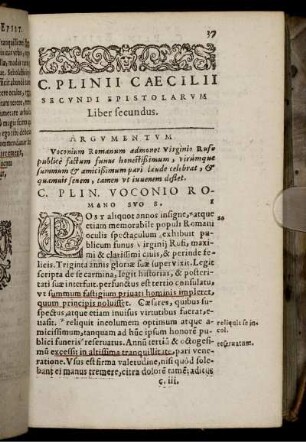 37
C. PLINII CAECILII
SECVNDI EPISTOLARVM
Liber secundus.
ARGVMENTVM
Voconium Romanum admonet Virginio Rufo
publicè factum funus honestißimum, virúmque
summum & amicißimum pari laude celebrat, &
quamuis senem, tamen vt iuuenem deflet.
C. PLIN. VOCONIO RO-
MANO SVO S. 1
POST aliquot annos insigne, atque
etiam memorabile populi Romani
oculis spectaculum exhibuit publi-
cum funus Virginij Rufi, maxi-
mi & clarissimi ciuis, & perinde fe-
licis. Triginta annis gloriæ suæ superuixit. Legit
scripta de se carmina, legit historias, & posteri-
tati suæ interfuit. perfunctus est tertio consulatu,
vt summum fastigium priuati hominis impleret,
quum principis noluisset. Cæsares, quibus su-
spectus, atque etiam inuisus virtutibus fuerat, e-
uasit. * reliquit incolumem optimum atque a-
micissimum, tanquam ad hũc ipsum honorẽ pu-
blici funeris reseruatus. Annũ tertiũ & octogesi-
mus excessit in altissima tranquillitate, pari vene-
ratione. Vsus est firma valetudine, nisi quòd sole-
bant ei manus tremere, citra dolorẽ tamẽ; aditus
reliquit se in-
col.
c. iii.